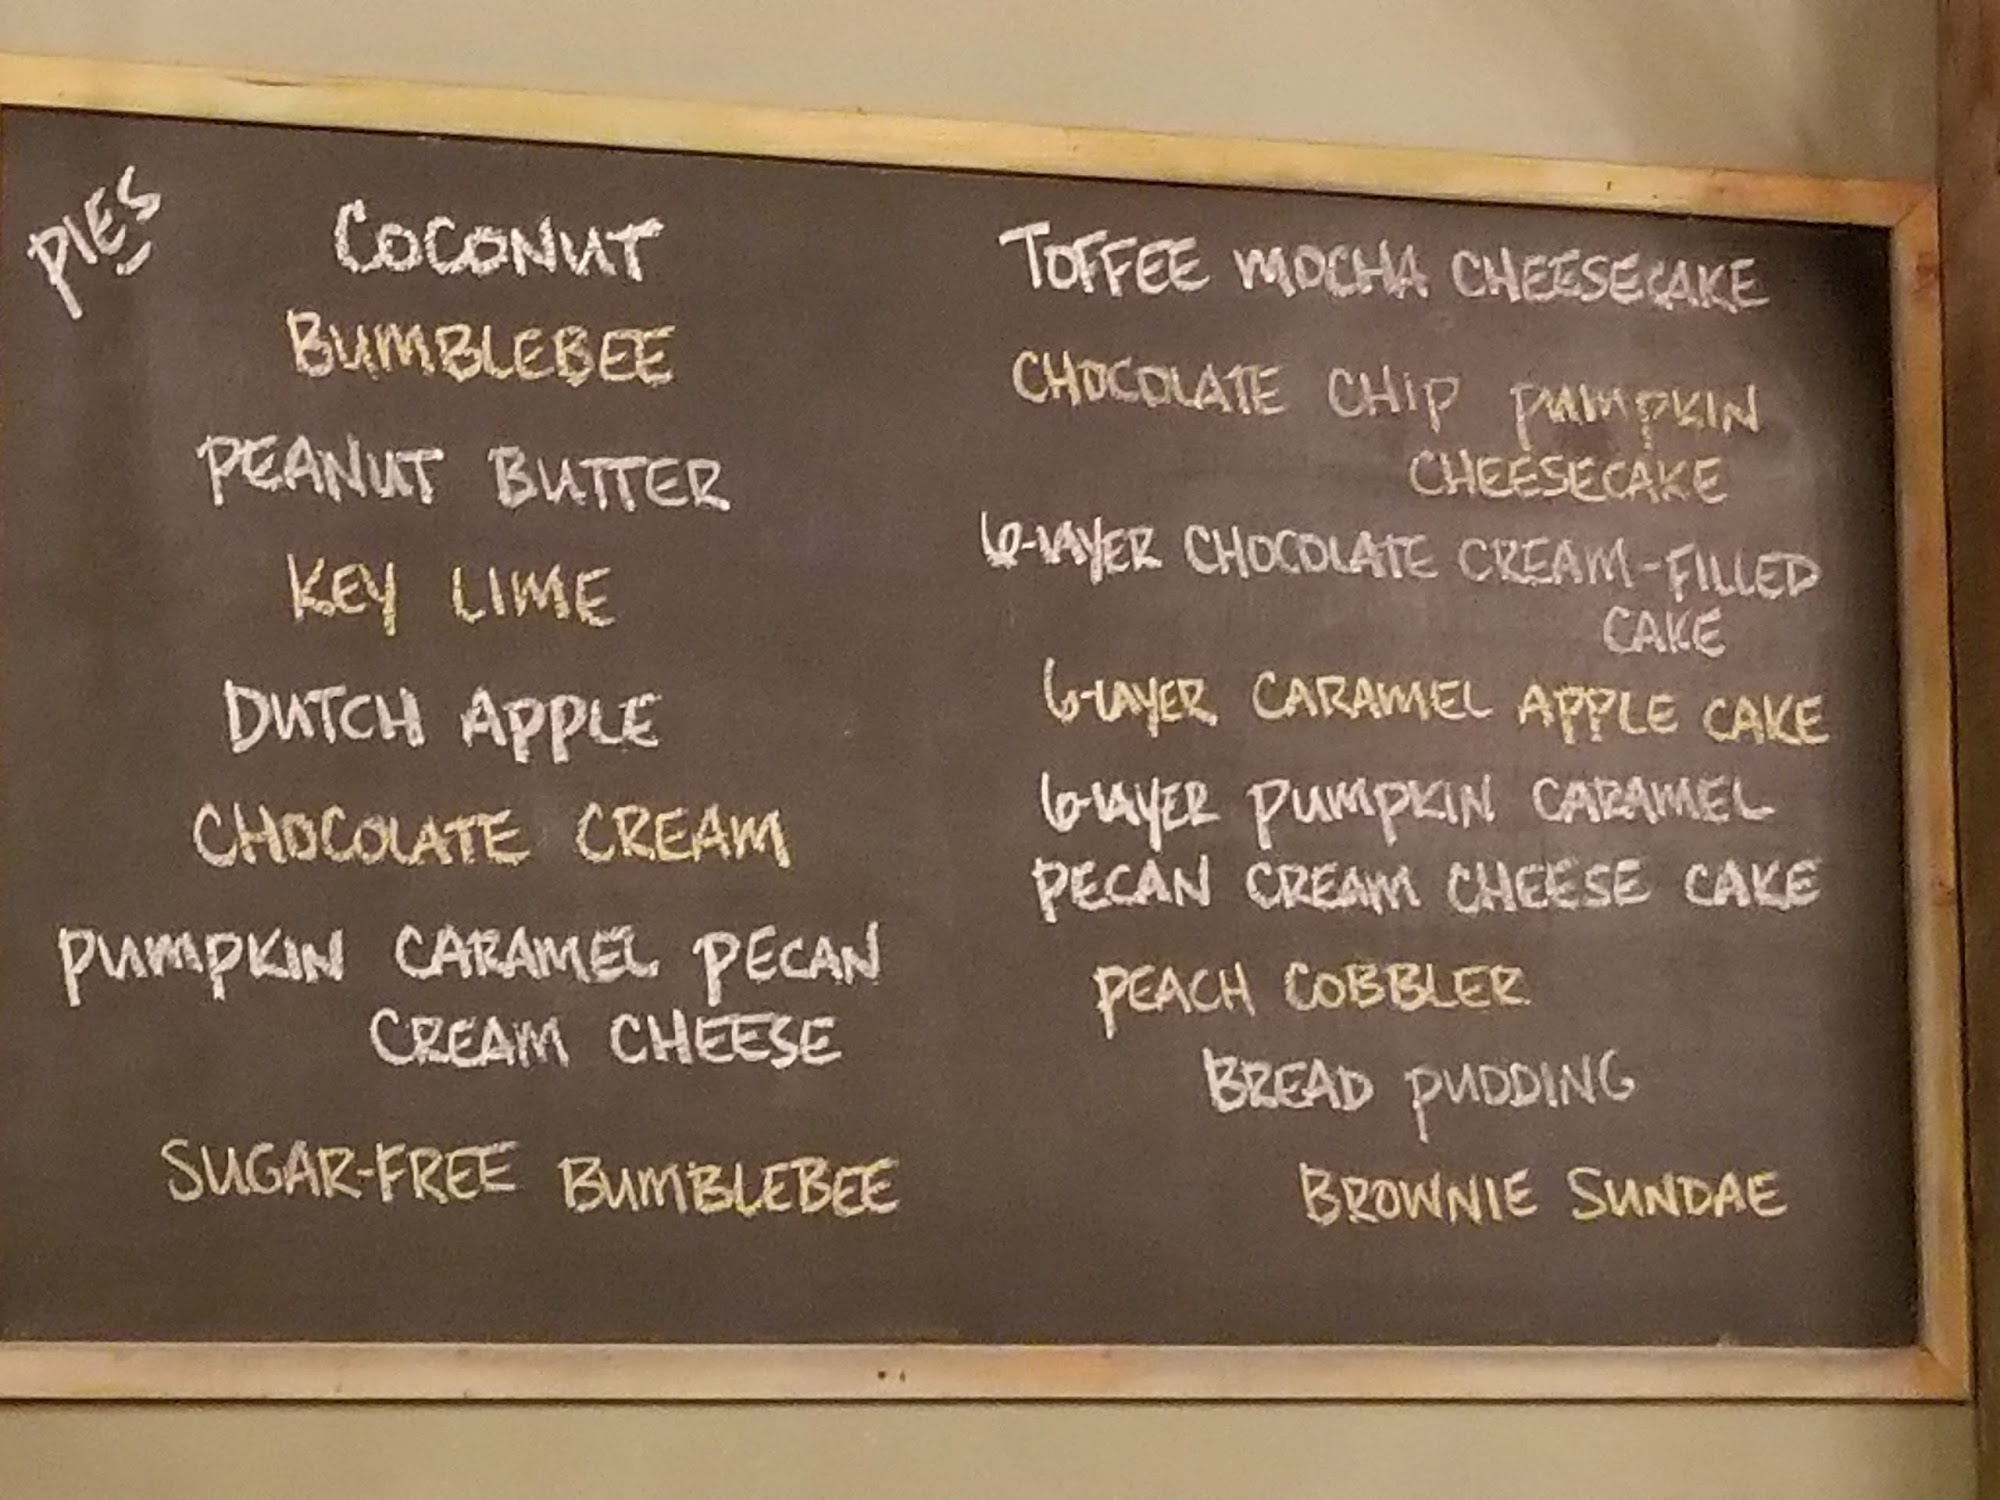 PIES
COCONUT
BUMBLEBEE
PEANUT BUTTER
KEY LIME
DUTCH APPLE
CHOCOLATE CREAM
PUMPKIN CARAMEL PECAN
CREAM CHEESE
SUGAR-FREE BUMBLEBEE
TOFFEE MOCHA CHEESECAKE
CHOCOLATE CHIP PUMPKIN
CHEESECAKE
6-LAYER CHOCOLATE CREAM-FILLED
CAKE
6-LAYER CARAMEL APPLE CAKE
6-LAYER PUMPKIN CARAMEL
PECAN CREAM CHEESE CAKE
PEACH COBBLER
BREAD PUDDING
BROWNIE SUNDAE